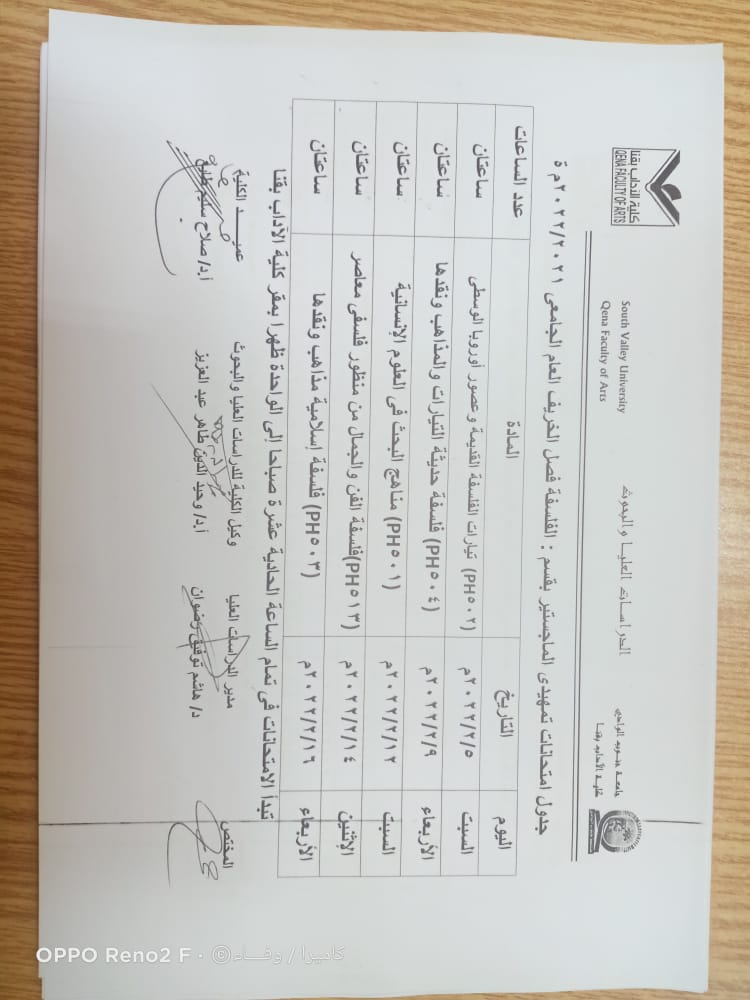 جامعة جنوب الوادي
كلية الآداب بقنا
الدراسات العليا والبحوث
South Valley University
Qena Faculty of Arts
كلية الآداب بقنا
QENA FACULTY OF ARTS
جدول امتحانات تمهيدى الماجستير بقسم : الفلسفة فصل الخريف العام الجامعى ٢٠٢٢/٢٠٢١م ة
اليوم التاريخ المادة عدد الساعات
السبت ٢٠٢٢/٢/٥م (PH٥٠٢) تيارات الفلسفة القديمة وعصور أوروبا الوسطى ساعتان
الأربعاء ٢٠٢٢/٢/٩م (PH٥٠٤) فلسفة حديثة التيارات والمذاهب ونقدها ساعتان
السبت ٢٠٢٢/٢/١٢م (PH٥٠١) مناهج البحث فى العلوم الإنسانية ساعتان
الإثنين ٢٠٢٢/٢/١٤م (PH٥١٣)فلسفة الفن والجمال من منظور فلسفى معاصر ساعتان
الأربعاء ٢٠٢٢/٢/١٦م (PH٥٠٣) فلسفة إسلامية مذاهب ونقدها ساعتان
تبدأ الامتحانات فى تمام الساعة الحادية عشرة صباحا إلى الواحدة ظهرا بمقر كلية الآداب بقنا
المختص مدير الدراسات العليا وكيل الكلية للدراسات العليا والبحوث عميد الكلية
د/ هاشم توفيق رضوان أ.د/ وحيد الدين طاهر عبد العزيز أ.د/ صلاح سليم طايع
OPPO Reno2 F · ©كاميرا / وفاء